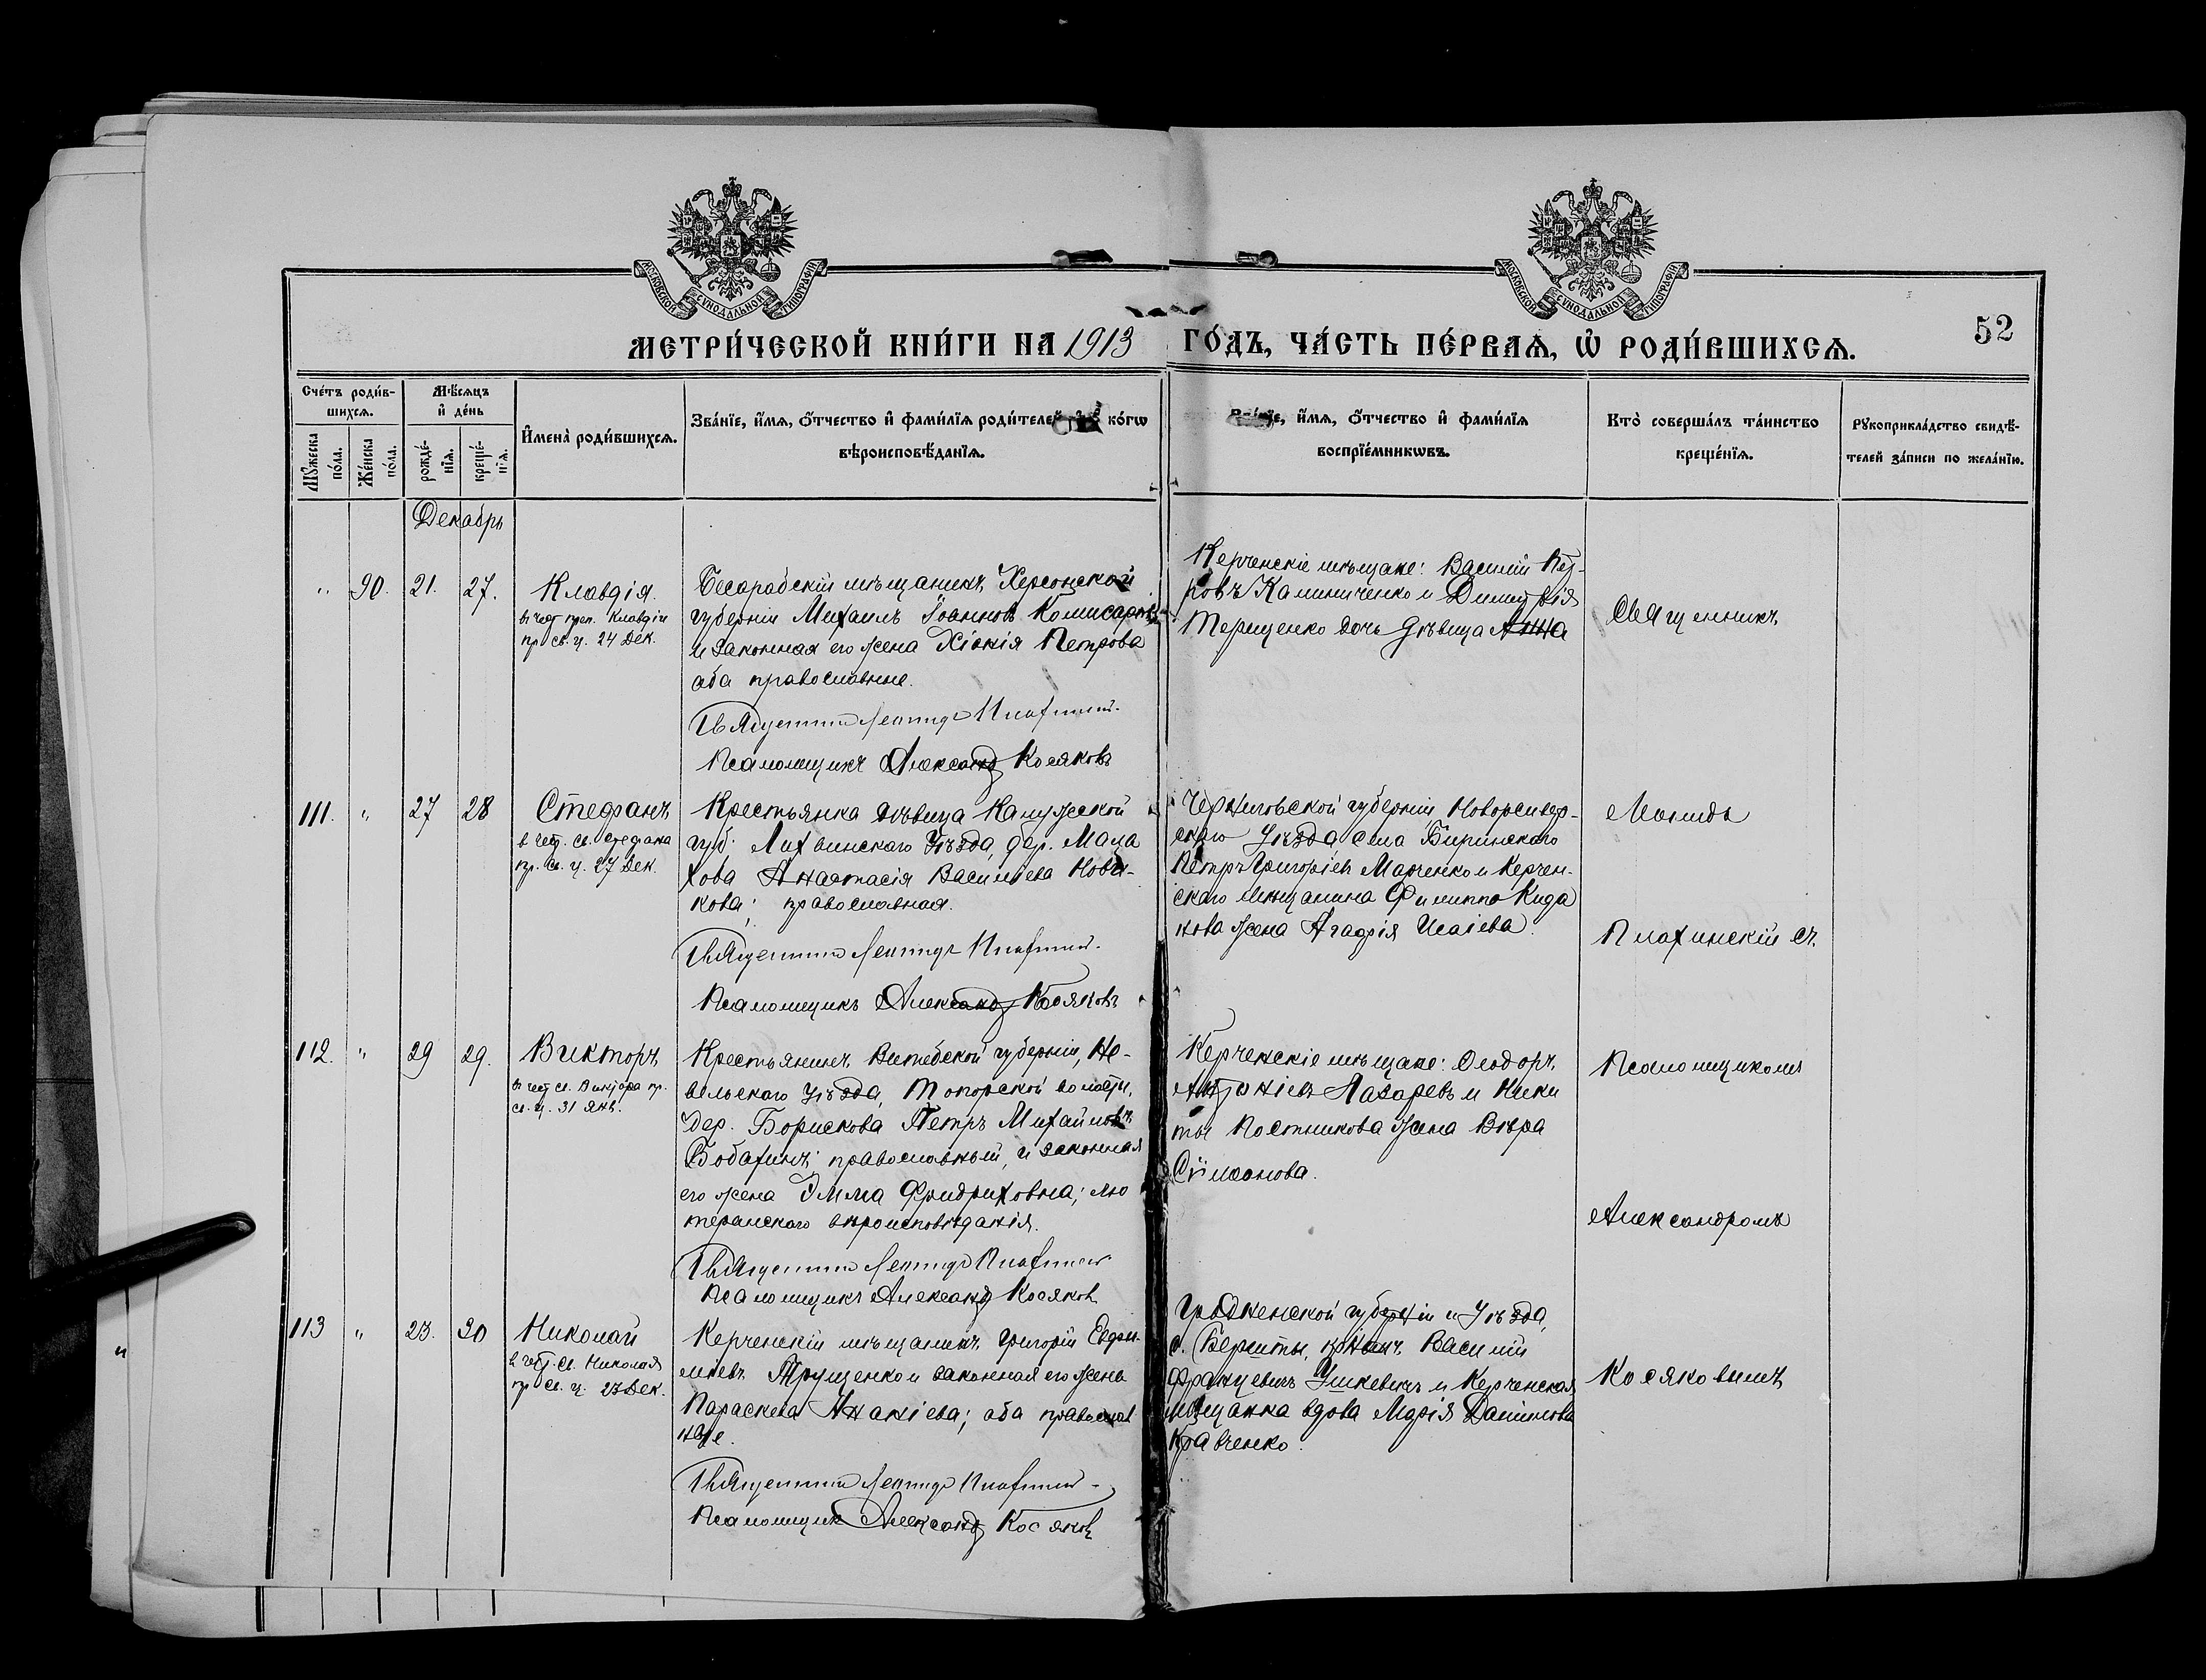 МОСКОВСКОЙ СѴНОДАЛЬНОЙ ТИПОГРАФІИ
МОСКОВСКОЙ СѴНОДАЛЬНОЙ ТИПОГРАФІИ
МЕТРИ́ЧЕСКОЙ КНИ́ГИ НА 1913 ГО́ДЪ, ЧА́СТЬ ПЕ́РВАѦ, Ѡ҆ РОДИ́ВШИХСѦ.
52
Сче́тъ роди́в-
шихсѧ.
Мꙋ́жеска
по́ла.
Же́нска
по́ла.
Мѣ́сѧцъ
и҆ де́нь
рожде́-
нїѧ.
креще́-
нїѧ.
И҆мена̀ роди́вшихсѧ.
Зва́нїе, и҆́мѧ, ѻ҆́тчество и҆ фами́лїѧ роди́телей, и҆ како́гѡ
вѣроисповѣ́данїѧ.
и҆́мѧ, ѻ҆́тчество и҆ фами́лїѧ
воспрїе́мникѡвъ.
Кто̀ соверша́лъ та́инство
креще́нїѧ.
Рꙋкоприкла́дство свидѣ́-
телей за́писи по жела́нїю.
Декабрь
" 90. 21. 27.
Клавдія.
въ чест. преп. Клавдіи
пр. св. ц. 24 Дек.
Бесарабскій мѣщанинъ, Херсонской
губерніи Михаилъ Іоанновъ Комисаровъ
и законная его жена Хіонія Петрова
оба православные.
Священникъ Леонидъ Плахинскій.
Псаломщикъ Александръ Косяковъ
Керченскіе мѣщане: Василій Пет-
ровъ Калиниченко и Димитрія
Терещенко дочь дѣвица Анна
Священникъ
111. " 27 28
Стефанъ
в чест. св. Стефана
пр. св. ц. 27 Дек.
Крестьянка дѣвица Калужской
губ. Лихвинскаго Уѣзда, дер. Мала
хова Анастасія Васильева Нови-
кова; православная.
Священникъ Леонидъ Плахинскій.
Псаломщикъ Александръ Косяковъ
Черниговской губерніи Новорсивер-
скаго Уѣзда села Биринскаго
Петръ Григоріевъ Марченко и Керчен-
скаго мѣщанина Филиппа Кида
кова жена Агафія Исаіева.
Леонидъ
Плахинскій съ
112. " 29 29.
Викторъ
въ чест. св. Виктора пр.
св. ц. 31 Янв.
Крестьянинъ Витебской губерніи, Не-
вельскаго Уѣзда, Топорской волости,
дер. Борискова Петръ Михайловъ
Бобахинъ; православный, и законная
его жена Эмма Фридриховна; лю
теранскаго вѣроисповѣданія.
Священникъ Леонидъ Плахинскій
Псаломщикъ Александръ Косяковъ
Керченскіе мѣщане: Ѳеодоръ
Антоніевъ Лазаревъ и Ники
ты Постникова жена Вѣра
Сѵмеонова.
Псаломщикомъ
Александромъ
113 " 23. 30
Николай
в чест. св. Николая
пр. св. ц. 23 Дек.
Керченскій мѣщанинъ Григорій Евфи-
міевъ Трущенко и законная его жена
Параскева Ананіева; оба православ
ные.
Священникъ Леонидъ Плахинскій -
Псаломщикъ Александръ Косяковъ
Гродненской губерніи и Уѣзда,
с. Бершты, Василій
Францевичъ Ушкевичъ и Керченская
мѣщанка вдова Марія Даниилова
Кравченко.
Косяковымъ